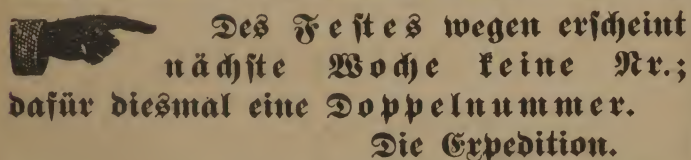 Des Festes wegen erscheint
nächste Woche keine Nr.;
dafür diesmal eine Doppelnummer.
Die Expedition.